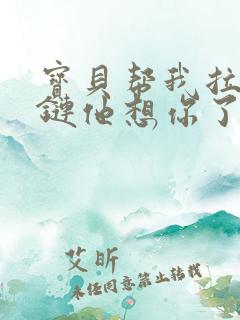 寳貝幇我拉
鏈他想你了
艾昕
未经同意禁止转载